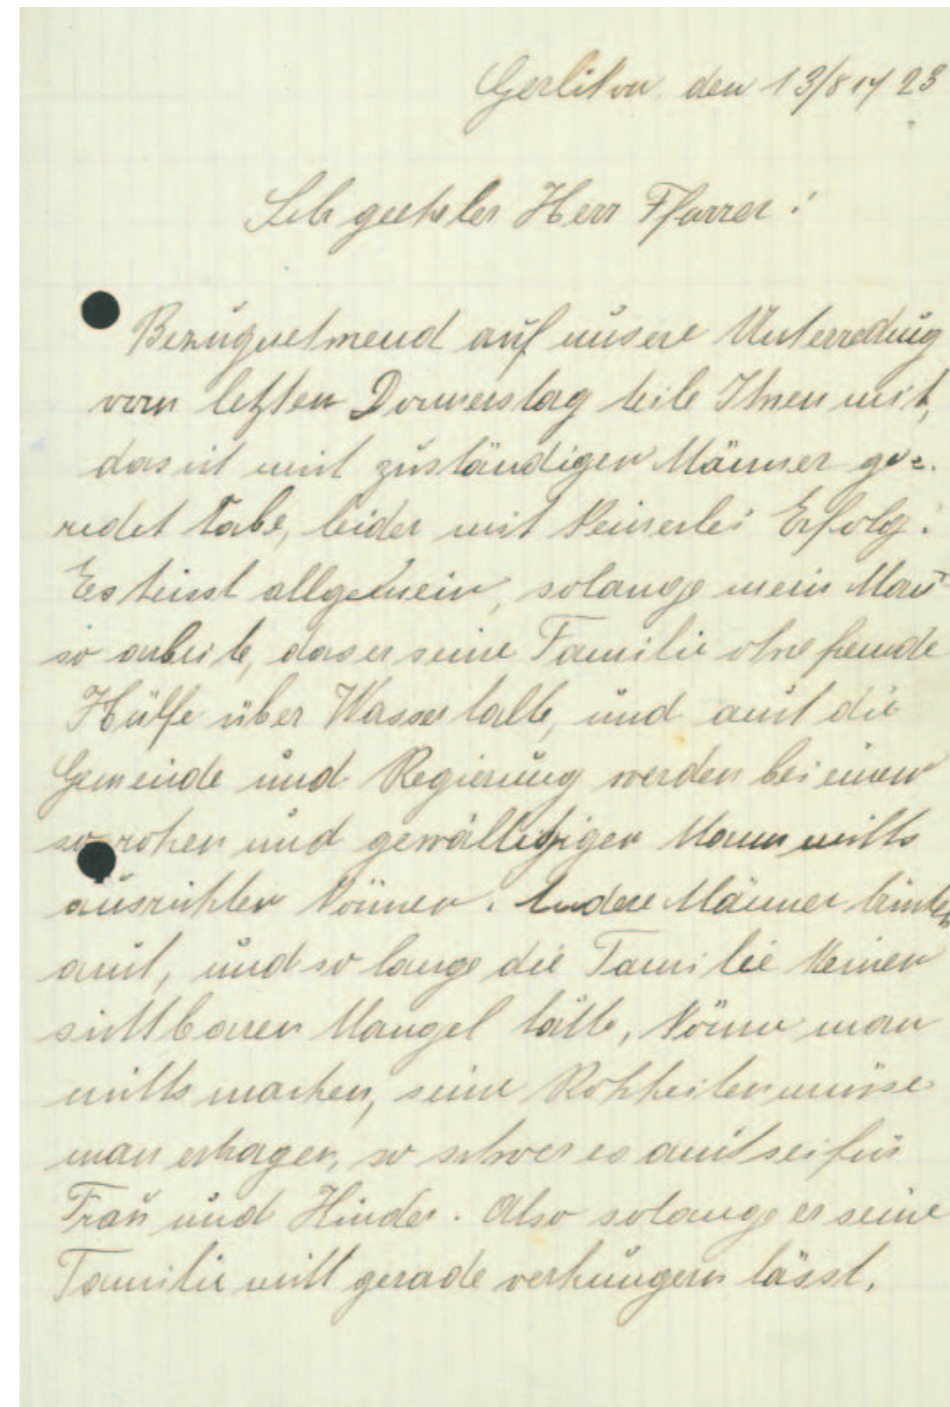 Gerlikon, den 13/8 19 23
Seh geehrter Herr Pfarrer!
Bezugnehmend auf unsere Unterredung
vom letzten Donnerstag teile Ihnen mit,
das ich mit zuständigen Männer ge=
redet habe, leider mit keinerlei Erfolg.
Es heisst allgemein, solange mein Man̄
so arbeite, das er seine Familie ohne fremde
Hülfe über Wasser halte, und auch die
Gemeinde und Regierung werden bei einem
so rohen und gewälltätigen Mann nichts
ausrichten können. Andere Männer trinken
auch, und so lange die Familie keinen
sichtbaren Mangel hätte, könne man
nichts machen, seine Rohheiten müsse
man ertragen, so schwer es auch sei für
Frau und Kinder. Also solange er seine
Familie nicht gerade verhungern lässt,